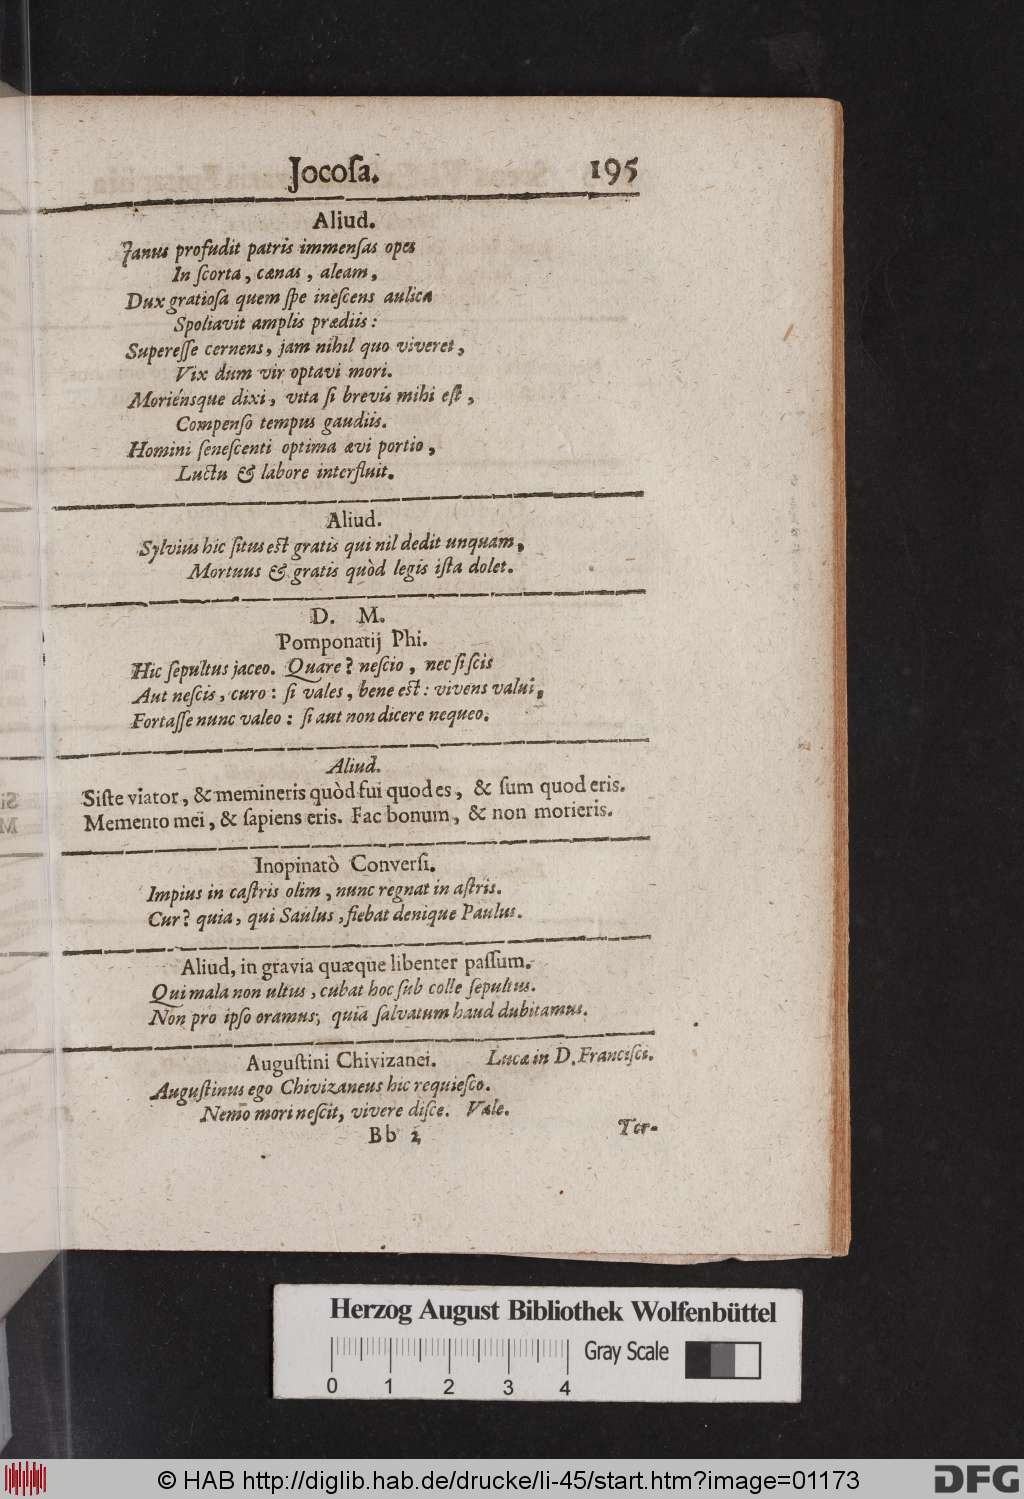 Jocoſa. 195
Aliud.
Janus profudit patris immenſas opes
In ſcorta, cænas, aleam,
Dux gratioſa quem ſpe ineſcens aulica
Spoliavit amplis prædiis:
Supereſſe cernens, jam nihil quo viveret,
Vix dum vir optavi mori.
Moriénsque dixi, vita ſi brevis mihi eſt,
Compenſo tempus gaudiis.
Homini ſeneſcenti optima ævi portio,
Luctu & labore interfluit.
Aliud.
Sylvius hic ſitus eſt gratis qui nil dedit unquam,
Mortuus & gratis quòd legis iſta dolet.
D. M.
Pomponatij Phi.
Hic ſepultus jaceo. Quare? neſcio, nec ſi ſcis
Aut neſcis, curo: ſi vales, bene eſt: vivens valui,
Fortaſſe nunc valeo: ſi aut non dicere nequeo.
Aliud.
Siſte viator, & memineris quòd fui quod es, & ſum quod eris.
Memento mei, & ſapiens eris. Fac bonum, & non morieris.
Inopinatò Converſi.
Impius in caſtris olim, nunc regnat in aſtris.
Cur? quia, qui Saulus, fiebat denique Paulus.
Aliud, in gravia quæque libenter paſſum.
Qui mala non ultus, cubat hoc ſub colle ſepultus.
Non pro ipſo oramus, quia ſalvatum haud dubitamus.
Auguſtini Chivizanei. Lucæ in D. Franciſci.
Auguſtinus ego Chivizaneus hic requieſco.
Nemo mori neſcit, vivere diſce. Vale.
Bb 2 Ter-
Herzog August Bibliothek Wolfenbüttel
Gray Scale
0 1 2 3 4
© HAB http://diglib.hab.de/drucke/li-45/start.htm?image=01173
DFG